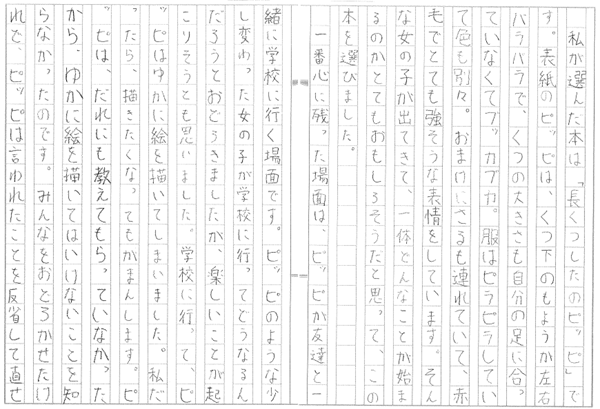 私が選んだ本は「長くつしたのピッピ」で
す。表紙のピッピは、くつ下のもようが左右
バラバラで、くつの大きさも自分の足に合っ
ていなくてブッカブカ。服はピラピラしてい
て色も別々。おまけにさるも連れていて、赤
毛でとても強そうな表情をしています。そん
な女の子が出てきて、一体どんなことが始ま
るのかとてもおもしろそうだと思って、この
本を選びました。
一番心に残った場面は、ピッピが友達と一
緒に学校に行く場面です。ピッピのような少
し変わった女の子が学校に行ってどうなるん
だろうとおどろきましたが、楽しいことが起
こりそうとも思いました。学校に行って、ピ
ッピはゆかに絵を描いてしまいました。私だ
ったら、描きたくなってもがまんします。ピ
ッピは、だれにも教えてもらっていなかった
から、ゆかに絵を描いてはいけないことを知
らなかったのです。みんなをおどろかせたけ
れで、ピッピは言われたことを反省して直せ